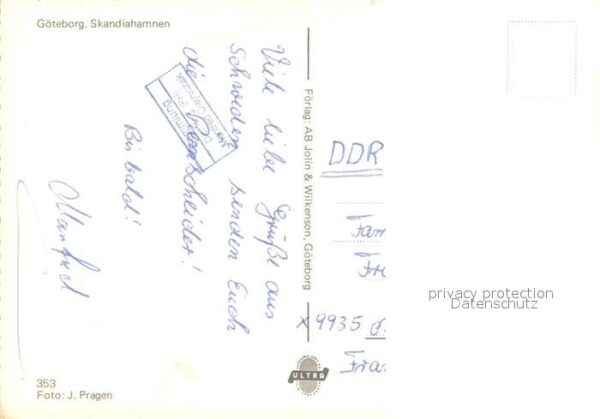 Göteborg. Skandiahamnen
Viele liebe Grüße aus
Schweden senden Euch
die
Bis bald!
Manfred
Förlag: AB Jolin & Wilkenson, Göteborg
DDR
Fam
Fr
x 9935
Fra
privacy protection
Datenschutz
ULTRA
353
Foto: J. Pragen